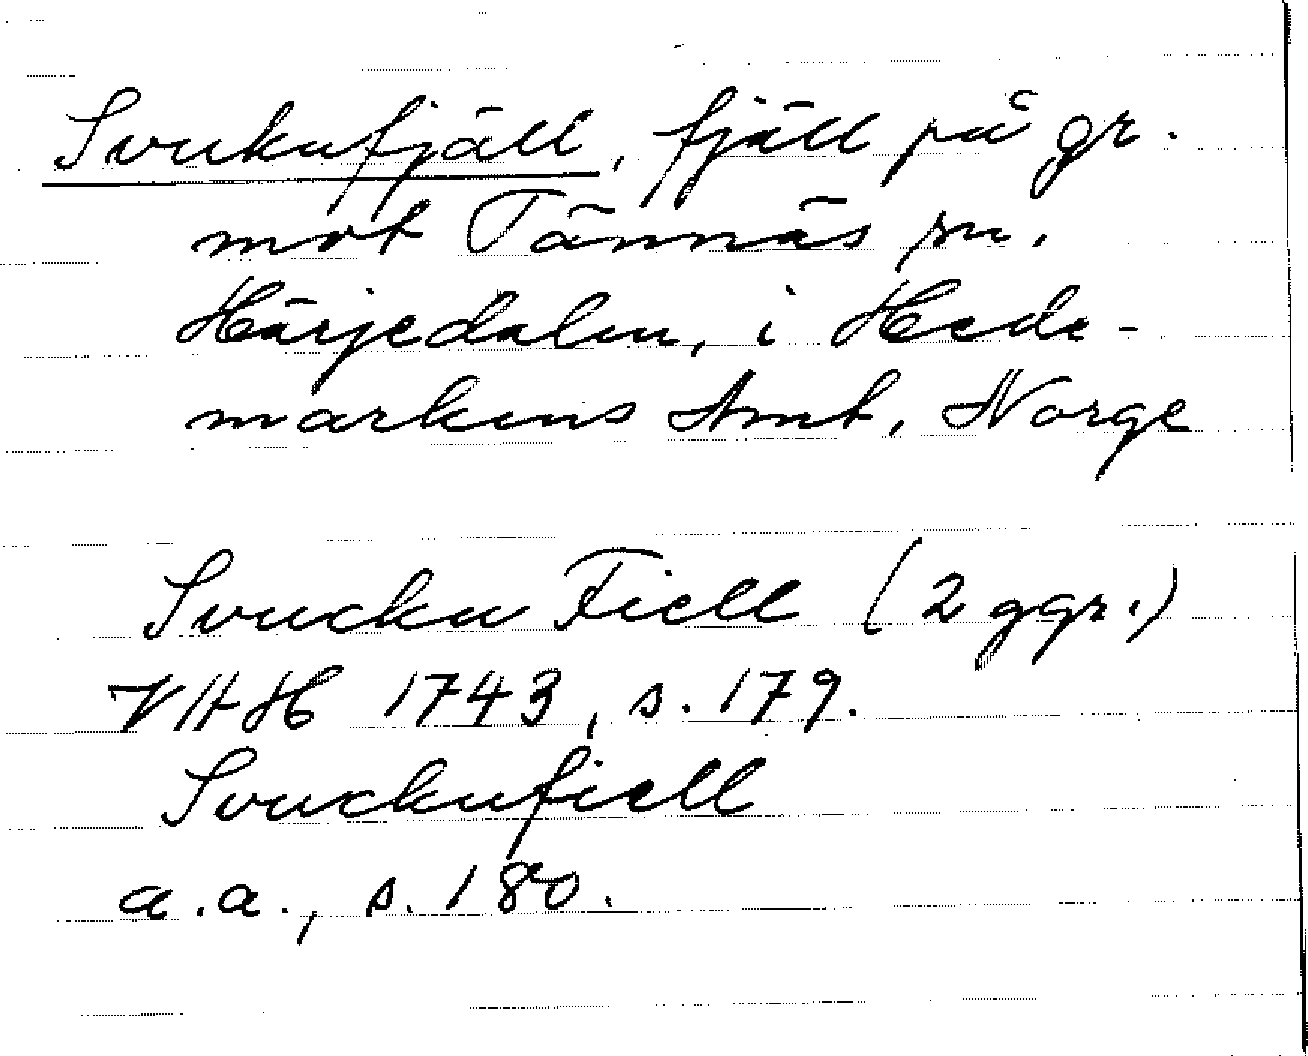 Svukufjäll, fjäll på gr.
mot Tännäs sn.
Härjedalen, i Hede-
markens Amt, Norge
Svucku Fiell (2 ggr.)
VHAH 1743, s. 179.
Svuckufiell
a.a., s. 180.